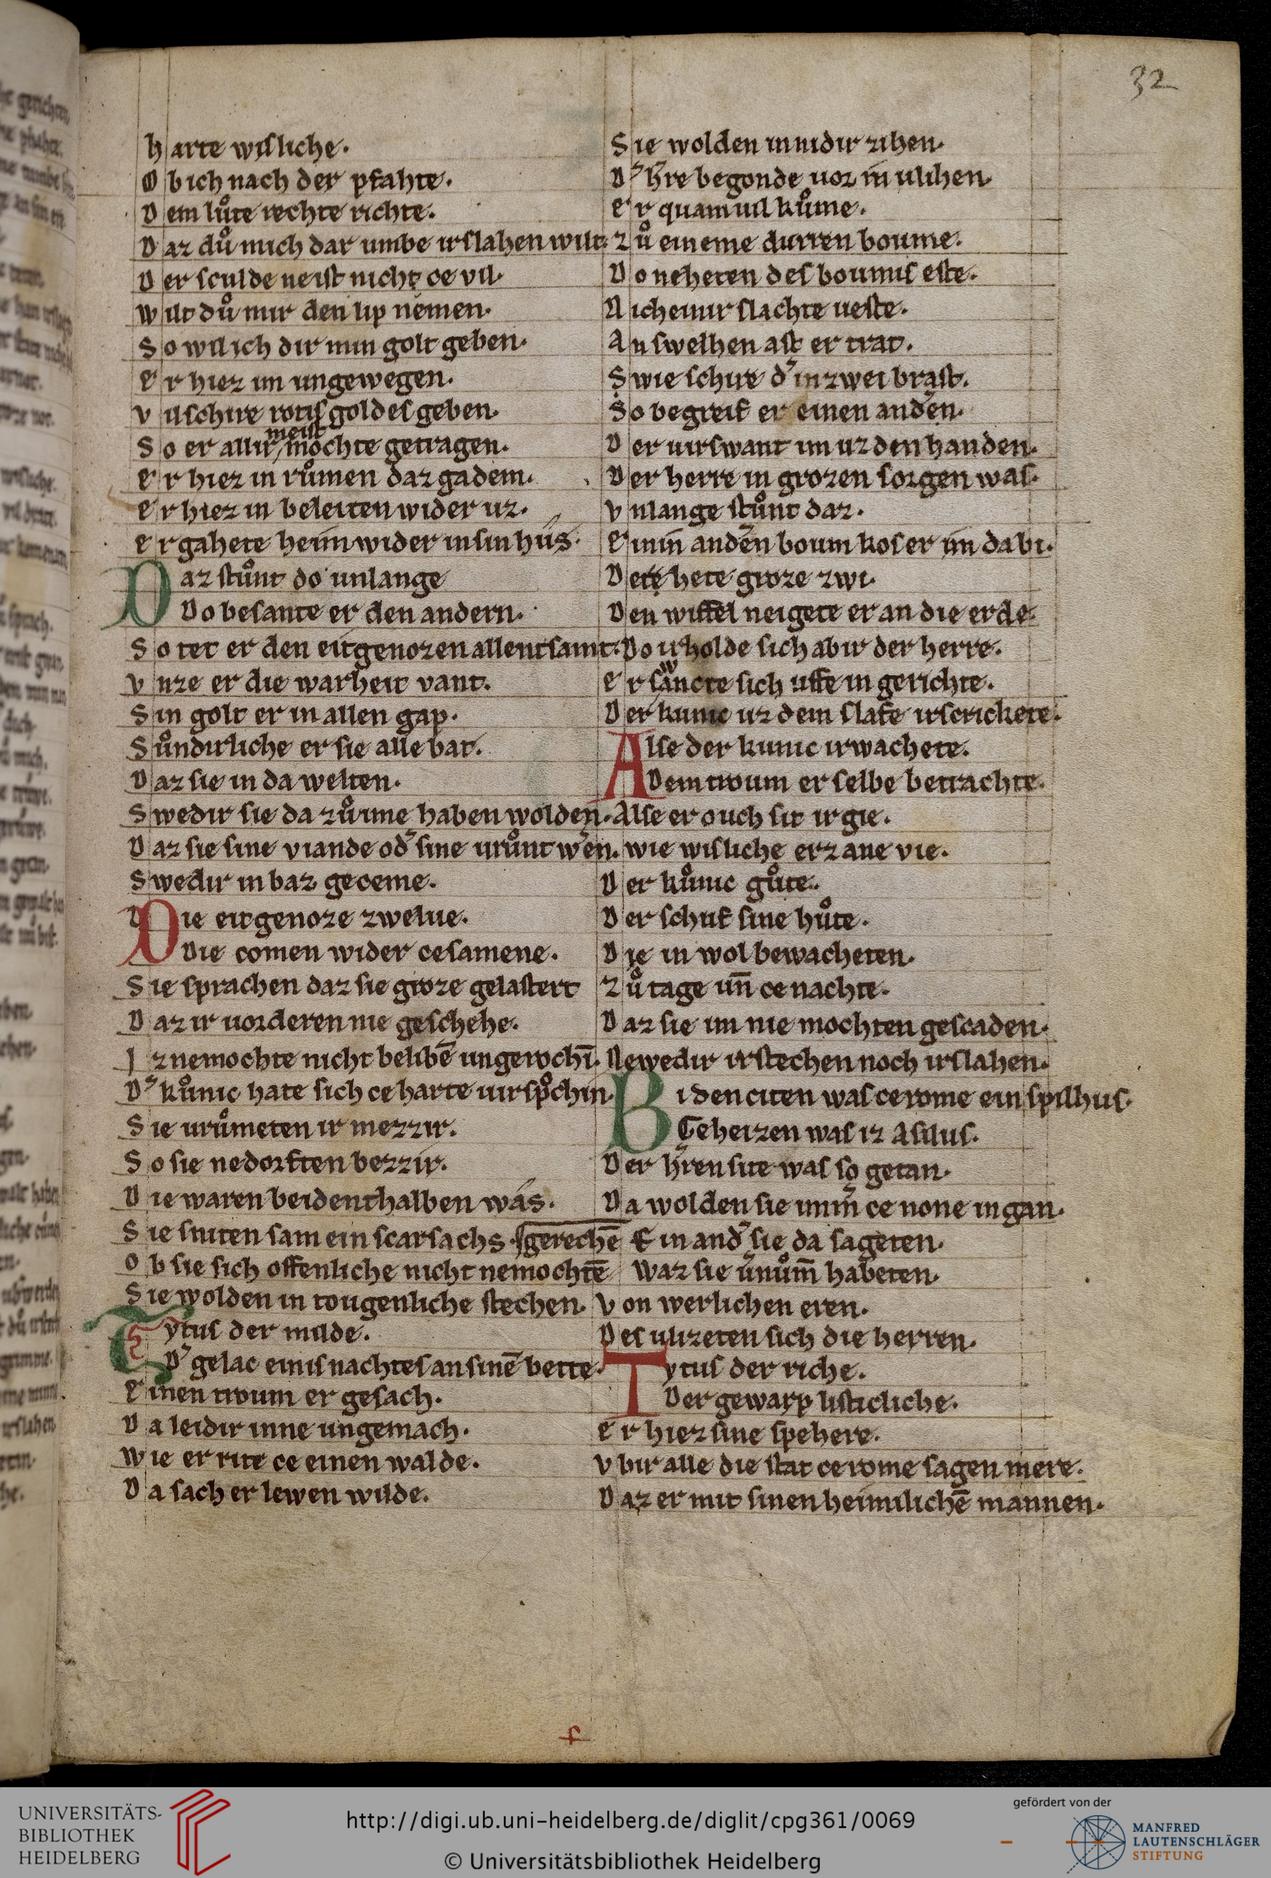 32
harte wisliche.
Ob ich nach der pfahte.
Dem luͦte rechte richte.
Daz duͦ mich dar umbe irslahen wilt.
Der sculde ne ist nicht ce vil.
wilt duͦ mir den lip nemen.
So wil ich dir min golt geben.
Er hiez im ungewegen.
vil schire rotis goldes geben.
So er allir meist mochte getragen.
Er hiez in ruͦmen daz gadem.
Er hiez in beleiten wider uz.
er gahete heim wider in sin hus.
Daz stuͦnt do unlange
Do besante er den andern.
So tet er den eitgenozen allentsamt.
vnze er die warheit vant.
Sin golt er in allen gap.
Suͦndirliche er sie alle bat.
Daz sie in da welten.
Swedir sie da zuͦ ime haben wolden.
Daz sie sine viande od᾿ sine urůnt w᾿en.
Swedir in baz geceme.
Die eitgenoze zwelue.
Die comen wider cesamene.
Sie sprachen daz sie groze gelastert
Daz ir uorderen nie geschehe.
Iz nemochte nicht belibē ungerochī.
D᾿ kuͦnic hate sich ce harte uirspͦchin.
Sie urůmeten ir mezzir.
So sie nedorften bezzir.
Die waren beidenthalben wás.
Sie sniten sam ein scarsachs. gerechē
Ob sie sich offenliche nicht nemochtē
Sie wolden in tougenliche stechen.
Tytus der milde.
D᾿ gelac einis nachtes an sinē bette.
Einen troum er gesach.
Da leidir inne ungemach.
wie er rite ce einen walde.
Da sach er lewen wilde.
Sie wolden in nidir zihen.
D᾿ h᾿re begonde uor in ulihen.
er quam uil kuͦme.
zuͦ eineme durren boume.
Do neheten des boumis este.
Nicheinir slachte ueste.
An swelhen ast er trat.
Swie schire d᾿ in zwei brast.
So begreif er einen and᾿en.
Der uirswant im uz den handen.
Der herre in grozen sorgen was.
vnlange stuͦnt daz.
Einin̄ and᾿en boum kos er im da bi.
Dete hete groze zwi.
Den wiffel neigete er an die erde.
Do irholde sich abir der herre.
er sancte sich uffe in gerichte.
Der kunic uz dem slafe irscrickete.
Alse der kunic irwachete.
Dem troum er selbe betrachte.
Alse er ouch sit irgie.
wie wisliche erz ane vie.
Der kuͦnic guͦte.
Der schuf sine huͦte.
Die in wol bewacheten.
Zuͦ tage un̄ ce nachte.
Daz sie im nie mochten gescaden.
Newedir irstechen noch irslahen.
Bi den citen was ce rome ein spilhus.
Geheizen was iz Asilus.
Der h᾿ren site was so getan.
Da wolden sie imm᾿ ce none in gan.
Ein and᾿ sie da sageten.
waz sie u᾿nům̄ habeten.
von werlichen eren.
Des ulizeten sich die herren.
Tytus der riche.
Der gewarp listicliche.
er hiez sine spehere.
vbir alle die stat ce rome sagen mere.
Daz er mit sinen heimilichē mannen.
UNIVERSITÄTS-
BIBLIOTHEK
HEIDELBERG
http://digi.ub.uni-heidelberg.de/diglit/cpg361/0069
© Universitätsbibliothek Heidelberg
gefördert von der
MANFRED
LAUTENSCHLÄGER
STIFTUNG